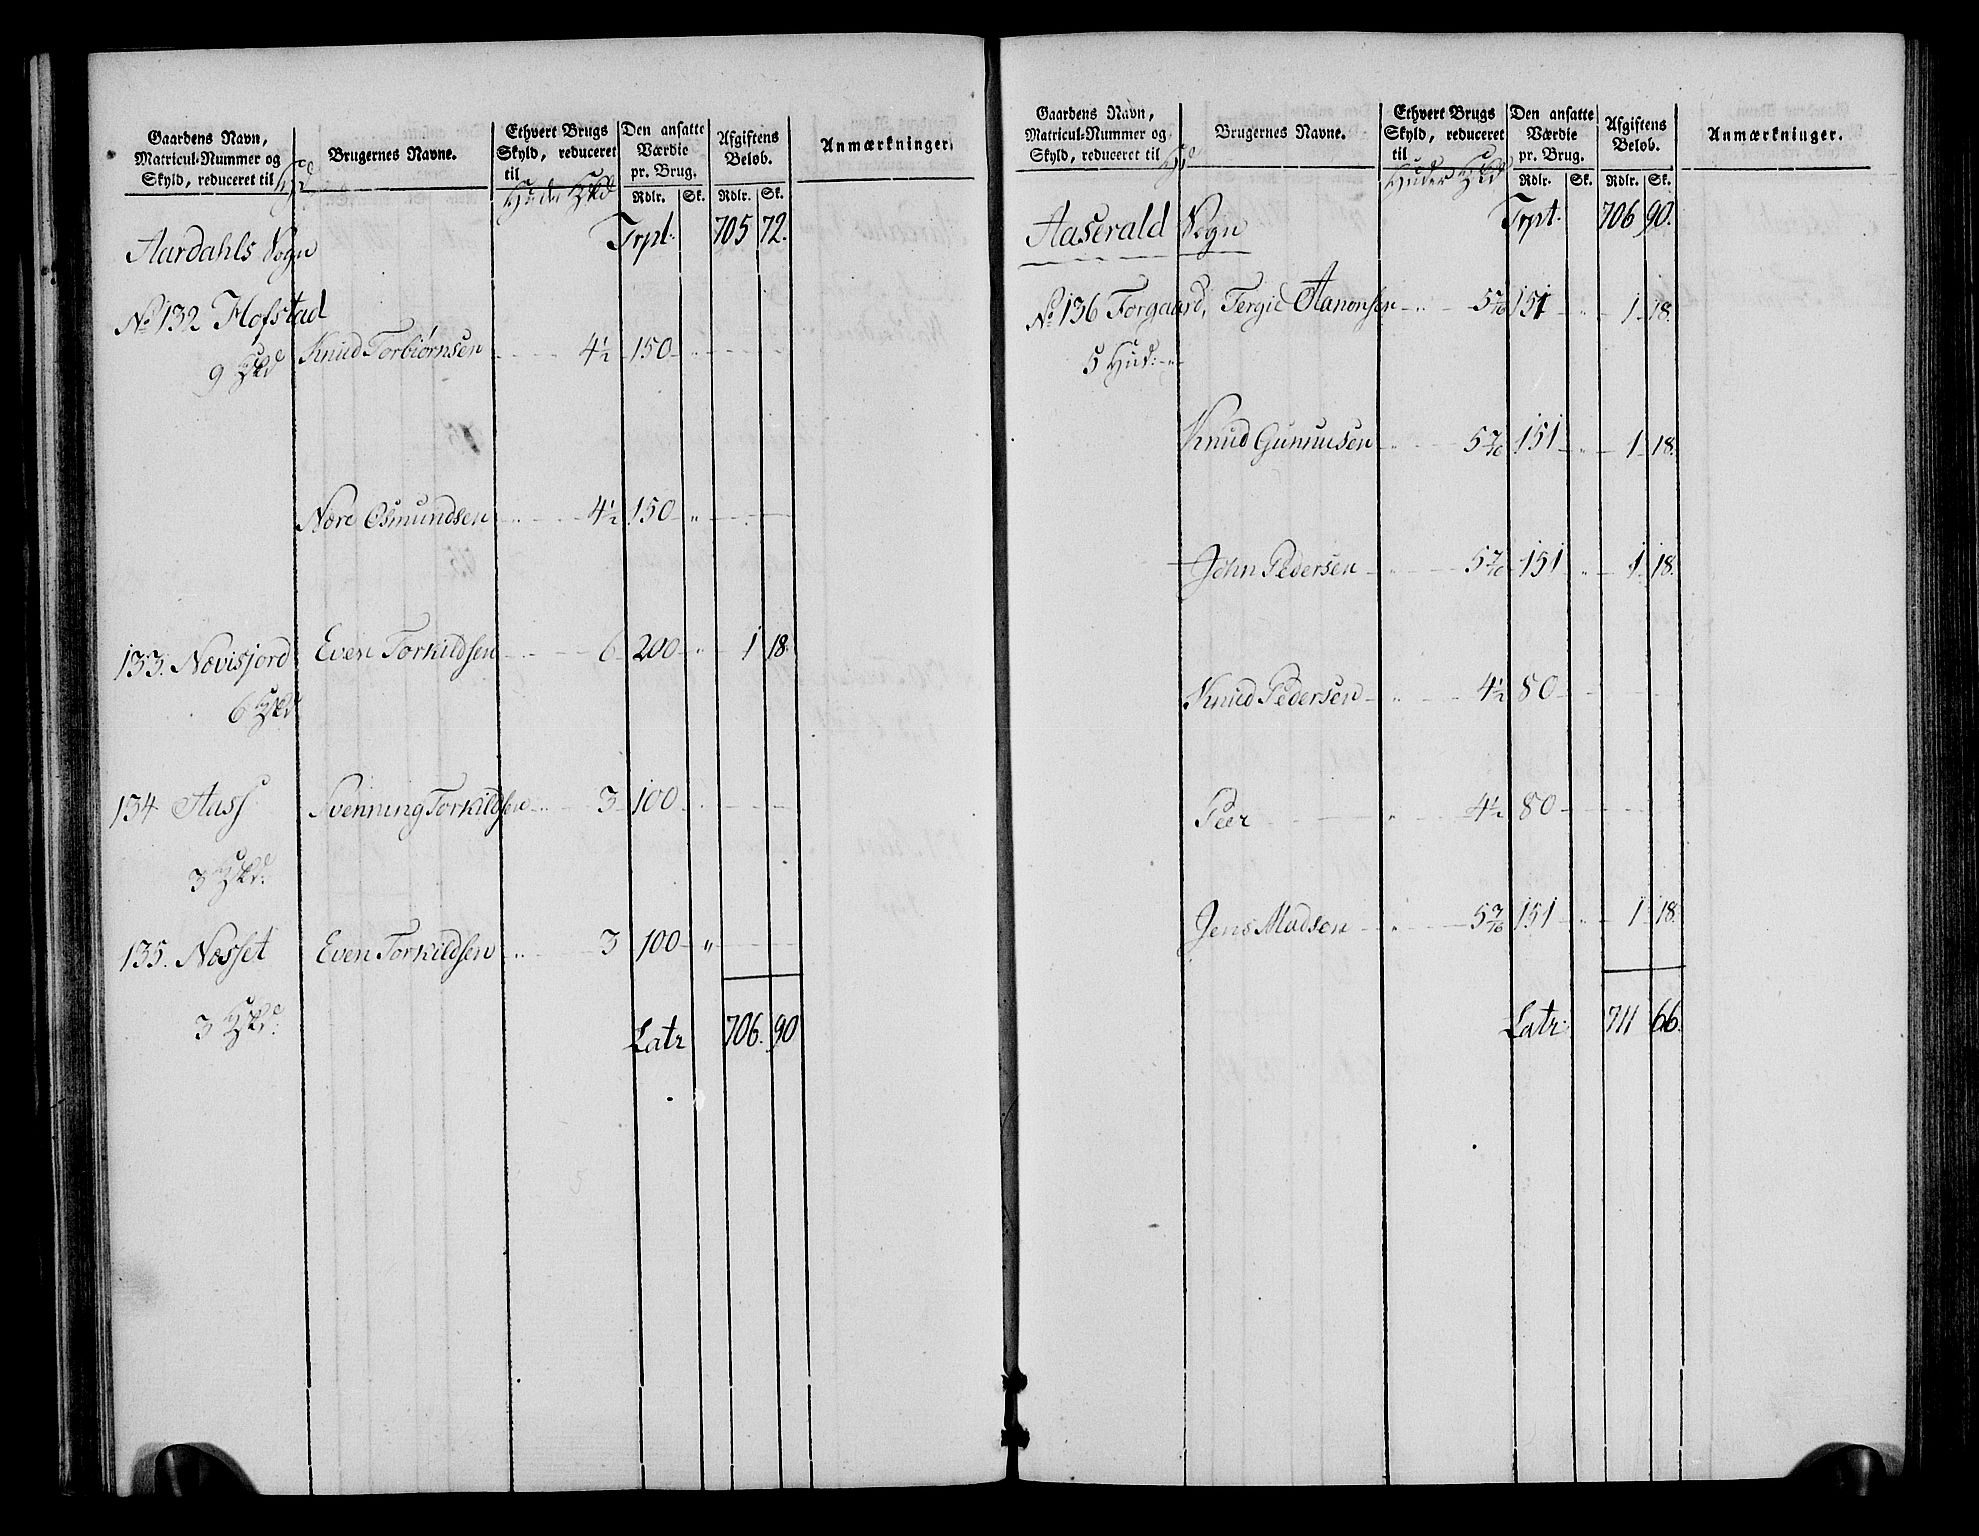 Gaardens Navn,
Matricul-Nummer og
Skyld, reduceret til
Brugernes Navne.
Ethvert Brugs
Skyld, reduceret
til
Huder
Den ansatte
Værdie
pr. Brug.
Rdlr. Sk.
Afgiftens
Beløb.
Rdlr. Sk.
Anmærkninger.
Aardahls Sogn Trpt: 705 72.
No 132 Hofstad
9 Skd Knud Torbiørnsen 4½ 150
Nere Osmundsen 4½ 150
133. Nævisjord Even Torkildsen 6 200 1 18.
6 Skd
134 Aass Svenning Torkildsen 3 100
3 Skd.
135. Næsset Even Torkildsen 3 100
3 Skd.
Latr 706. 90
Gaardens Navn,
Matricul-Nummer og
Skyld, reduceret til
Brugernes Navne.
Ethvert Brugs
Skyld, reduceret
til
Huder
Den ansatte
Værdie
pr. Brug.
Rdlr. Sk.
Afgiftens
Beløb.
Rdlr. Sk.
Anmærkninger.
Aaserald Sogn Trpt. 706 90.
No 136 Forgaard, Tergie Aanonsen 151 1 18.
5 Hud:
Knud Gunnusen 151 1 18.
John Pedersen 151 1 18.
Knud Pedersen 4½ 80
Peer 4½ 80
Jens Madsen 151 1 18.
Latr: 711 66.